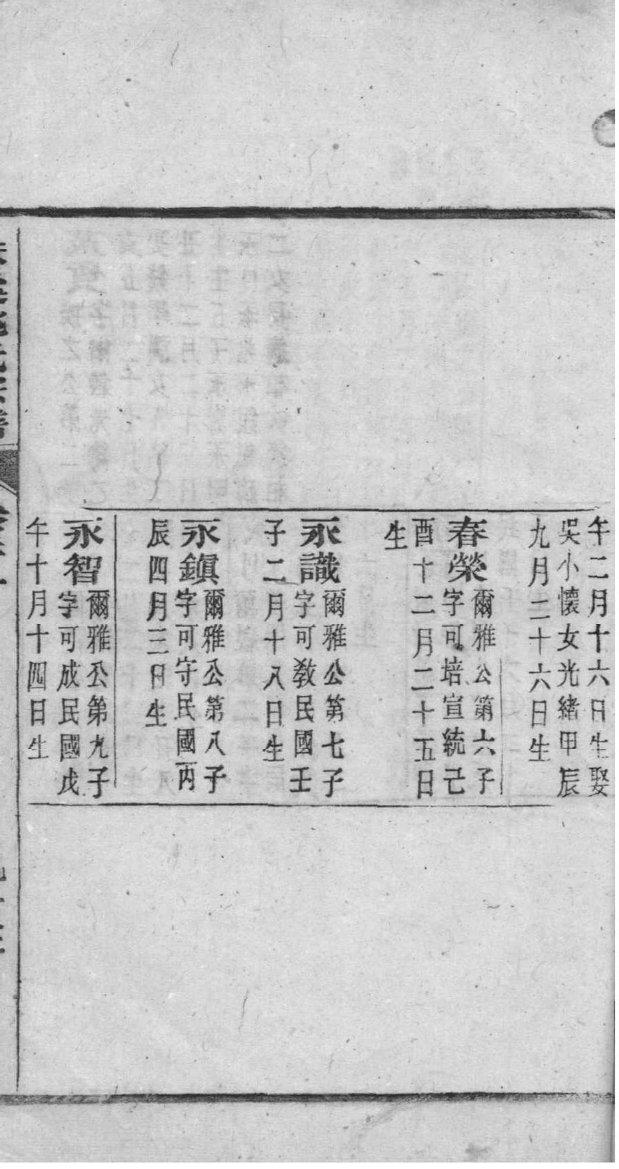 午二月十六日生娶
吳小懷女光緒甲辰
九月二十六日生
春榮
爾雅公第六子
字可培宣統己
酉十二月二十五日
生
永識
爾雅公第七子
字可教民國壬
子二月十八日生
永鎮
爾雅公第八子
字可守民國丙
辰四月三日生
永智
爾雅公第九子
字可成民國戊
午十月十四日生
氏宗譜